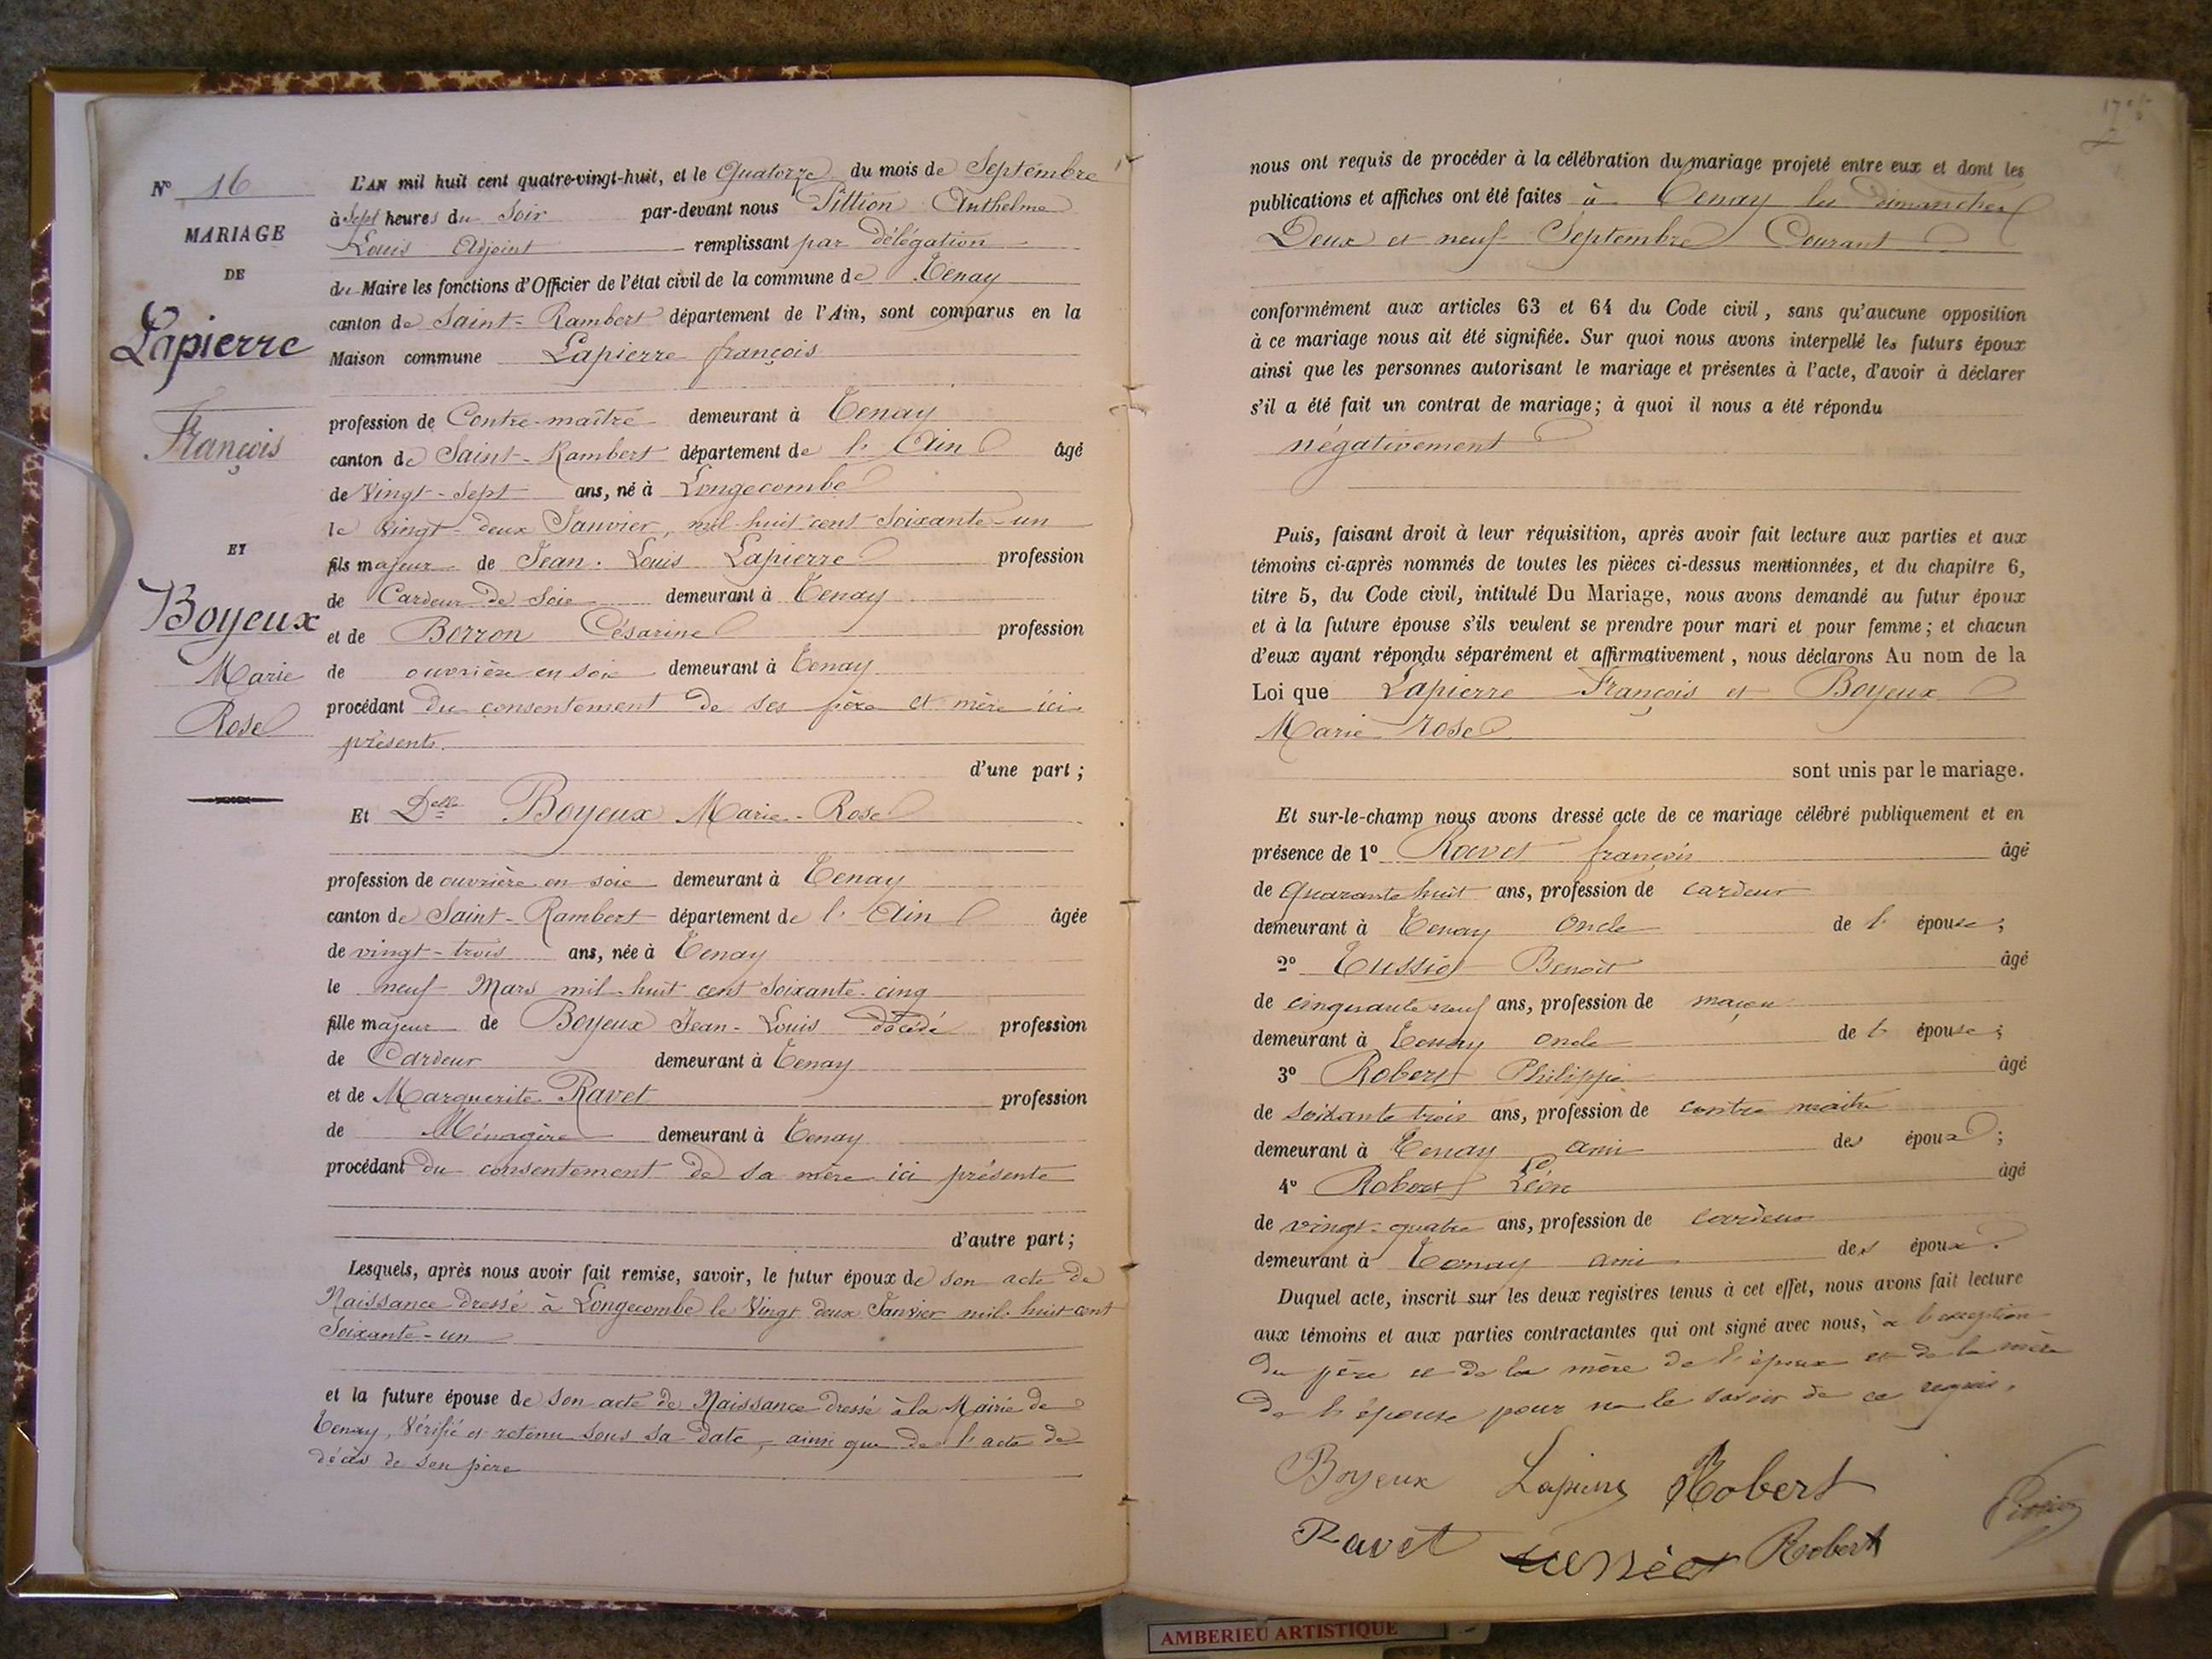 N° 16
MARIAGE
DE
Lapierre
François
ET
Boyeux
Marie
Rose
L'AN mil huit cent quatre-vingt-huit, et le Quatorze du mois de Septembre
à Sept heures du Soir par-devant nous Pittion Anthelme
Louis Adjoint remplissant par délégation
du Maire les fonctions d'Officier de l'état civil de la commune de Tenay
canton de Saint-Rambert département de l'Ain, sont comparus en la
Maison commune Lapierre françois
profession de Contre-maître demeurant à Tenay
canton de Saint-Rambert département de l'Ain âgé
de Vingt-Sept ans, né à Longecombe
le Vingt-deux Janvier, mil huit cent Soixante-un
fils majeur de Jean-Louis Lapierre profession
de Cardeur de Soie demeurant à Tenay
et de Berron Césarine profession
de ouvrière en soie demeurant à Tenay
procédant du consentement de ses père et mère ici
présents.
d'une part ;
Et Delle Boyeux Marie-Rose
profession de ouvrière en soie demeurant à Tenay
canton de Saint-Rambert département de l'Ain âgée
de vingt-trois ans, née à Tenay
le neuf Mars mil-huit cent Soixante-cinq
fille majeur de Boyeux Jean-Louis décédé profession
de Cardeur demeurant à Tenay
et de Marguerite Ravet profession
de Ménagère demeurant à Tenay
procédant du consentement de sa mère ici présente
d'autre part ;
Lesquels, après nous avoir fait remise, savoir, le futur époux de son acte de
Naissance dressé à Longecombe le Vingt deux Janvier mil-huit-cent
Soixante-un
et la future épouse de son acte de Naissance dressé à la Mairie de
Tenay, Vérifié et retenu sous sa date, ainsi que de l'acte de
décès de son père
nous ont requis de procéder à la célébration du mariage projeté entre eux et dont les
publications et affiches ont été faites à Tenay les dimanches
Deux et neuf Septembre Courant
conformément aux articles 63 et 64 du Code civil, sans qu'aucune opposition
à ce mariage nous ait été signifiée. Sur quoi nous avons interpellé les futurs époux
ainsi que les personnes autorisant le mariage et présentes à l'acte, d'avoir à déclarer
s'il a été fait un contrat de mariage ; à quoi il nous a été répondu
négativement
Puis, faisant droit à leur réquisition, après avoir fait lecture aux parties et aux
témoins ci-après nommés de toutes les pièces ci-dessus mentionnées, et du chapitre 6,
titre 5, du Code civil, intitulé Du Mariage, nous avons demandé au futur époux
et à la future épouse s'ils veulent se prendre pour mari et pour femme ; et chacun
d'eux ayant répondu séparément et affirmativement, nous déclarons Au nom de la
Loi que Lapierre François et Boyeux
Marie-rose
sont unis par le mariage.
Et sur-le-champ nous avons dressé acte de ce mariage célébré publiquement et en
présence de 1° Ravet françois âgé
de Quarante huit ans, profession de cardeur
demeurant à Tenay Oncle de l'épouse ;
2° Tussiot Benoît âgé
de cinquante neuf ans, profession de maçon
demeurant à Tenay oncle de l'épouse ;
3° Robert Philippe âgé
de soixante trois ans, profession de contre maitre
demeurant à Tenay ami des époux ;
4° Robert Léon âgé
de vingt-quatre ans, profession de cardeur
demeurant à Tenay ami des époux.
Duquel acte, inscrit sur les deux registres tenus à cet effet, nous avons fait lecture
aux témoins et aux parties contractantes qui ont signé avec nous, à l'exception
du père et de la mère de l'époux et de la mère
de l'épouse pour ne le savoir de ce requis.
Boyeux Lapierre Robert
Ravet Robert
AMBERIEU ARTISTIQUE